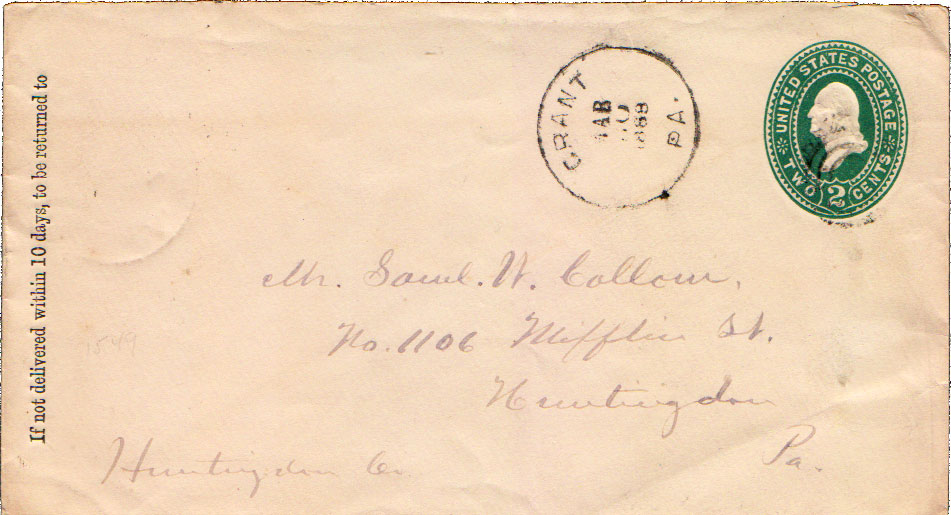 If not delivered within 10 days, to be returned to
GRANT
PA.
1889
UNITED STATES POSTAGE
TWO 2 CENTS
Mr. Saml. W.
No. 1106 Mifflin St.
Huntingdon
Huntingdon Co. Pa.